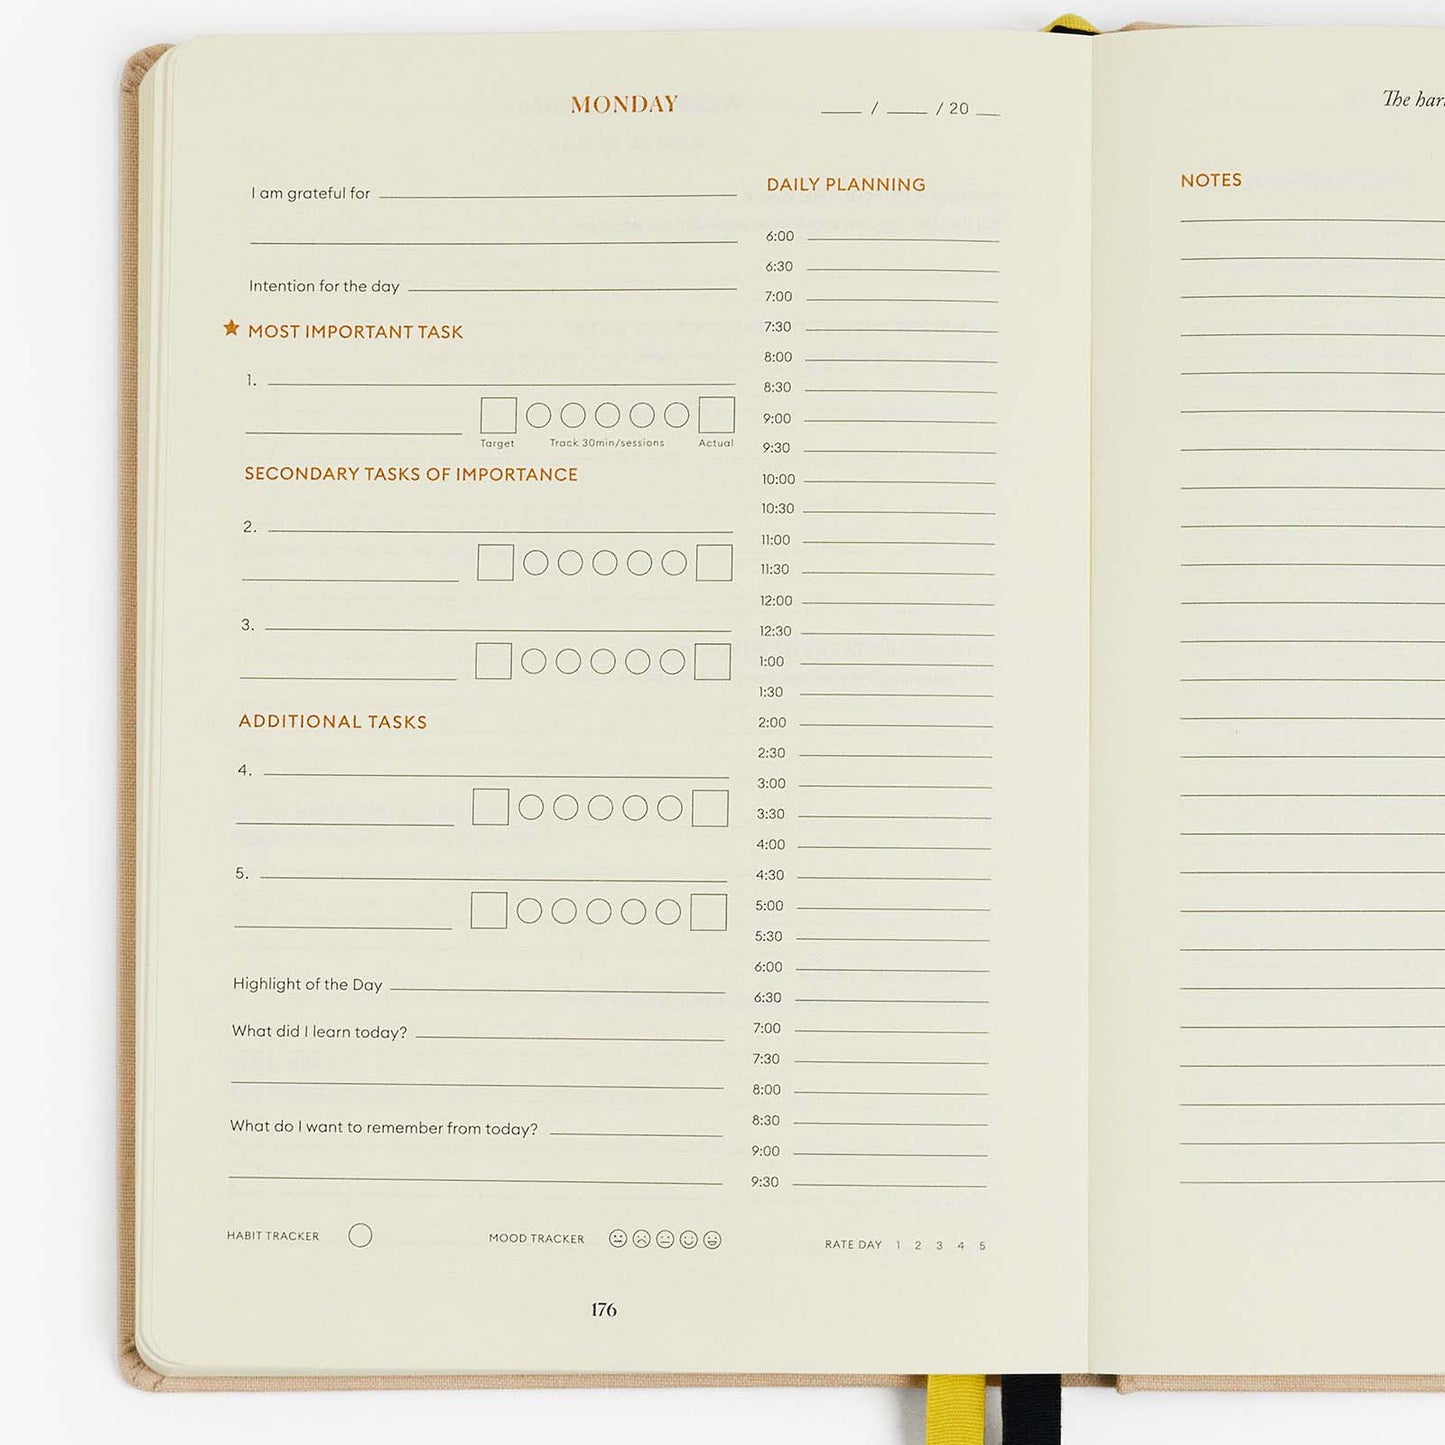 MONDAY
/ / 20
I am grateful for
Intention for the day
MOST IMPORTANT TASK
1.
Target Track 30min/sessions Actual
SECONDARY TASKS OF IMPORTANCE
2.
3.
ADDITIONAL TASKS
4.
5.
Highlight of the Day
What did I learn today?
What do I want to remember from today?
DAILY PLANNING
6:00
6:30
7:00
7:30
8:00
8:30
9:00
9:30
10:00
10:30
11:00
11:30
12:00
12:30
1:00
1:30
2:00
2:30
3:00
3:30
4:00
4:30
5:00
5:30
6:00
6:30
7:00
7:30
8:00
8:30
9:00
9:30
HABIT TRACKER MOOD TRACKER RATE DAY 1 2 3 4 5
176
The
NOTES